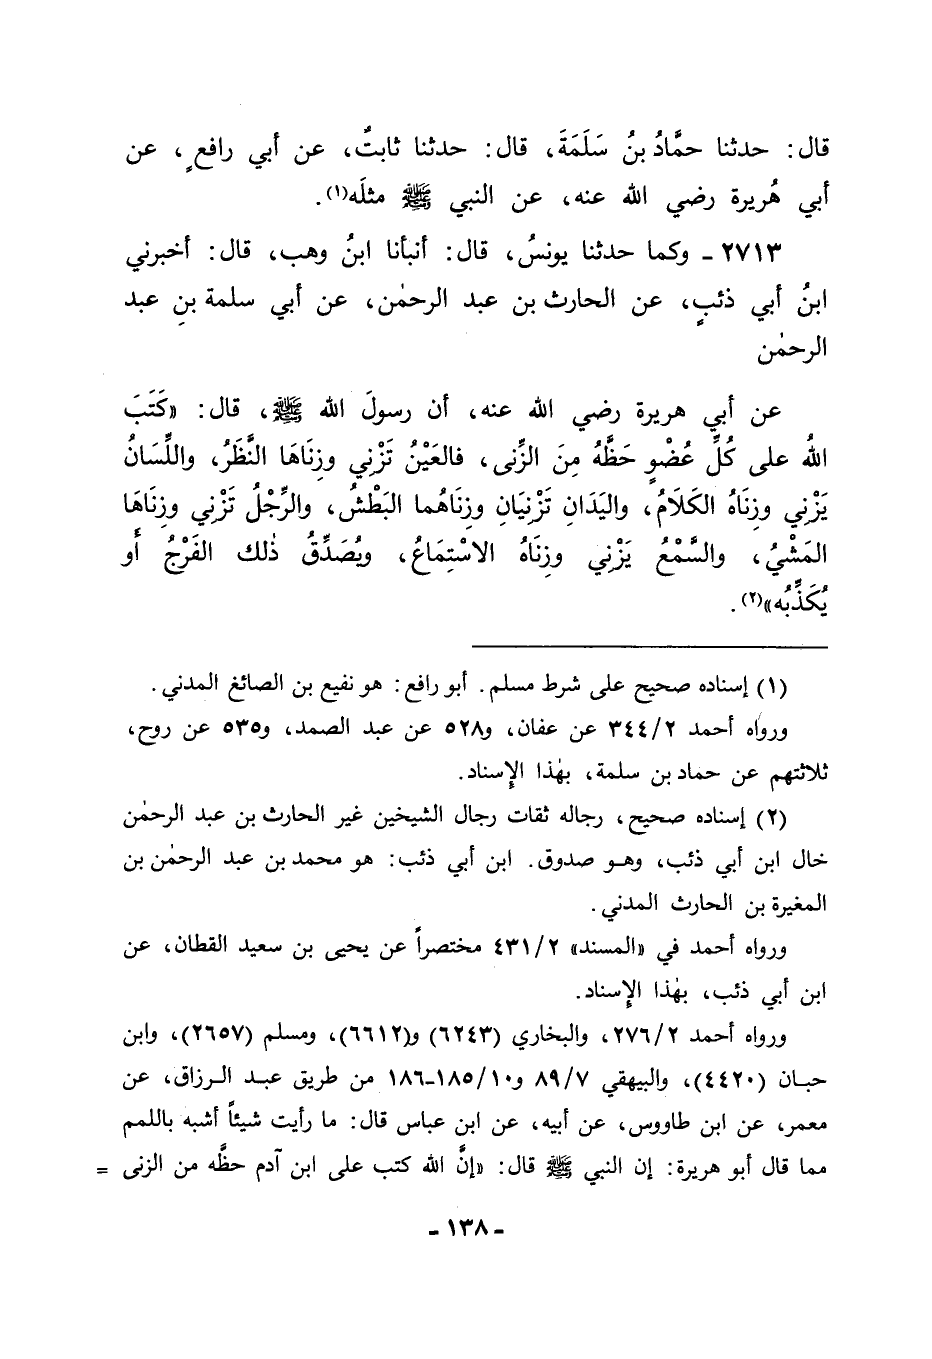 قال: حدثنا حمَّادُ بنُ سَلَمَةَ، قال: حدثنا ثابتٌ، عن أبي رافعٍ، عن
أبي هُريرة رضي الله عنه، عن النبي ﷺ مثلَه(١).
٢٧١٣ ـ وكما حدثنا يونسُ، قال: أنبأنا ابنُ وهب، قال: أخبرني
ابنُ أبي ذئبٍ، عن الحارث بن عبد الرحمٰن، عن أبي سلمة بنِ عبد
الرحمٰن
عن أبي هريرة رضي الله عنه، أن رسولَ الله ﷺ، قال: «كَتَبَ
اللهُ على كُلِّ عُضْوٍ حَظَّهُ مِنَ الزِّنى، فالعَيْنُ تَزْنِي وزِنَاهَا النَّظَرُ، واللِّسَانُ
يَزْنِي وزِنَاهُ الكَلَامُ، واليَدَانِ تَزْنِيَانِ وزِنَاهُما البَطْشُ، والرِّجْلُ تَزْنِي وزِنَاهَا
المَشْيُ، والسَّمْعُ يَزْنِي وزِنَاهُ الاسْتِمَاعُ، ويُصَدِّقُ ذٰلك الفَرْجُ أَو
يُكَذِّبُه»(٢).
(١) إسناده صحيح على شرط مسلم. أبو رافع: هو نفيع بن الصائغ المدني.
ورواه أحمد ٣٤٤/٢ عن عفان، و٥٢٨ عن عبد الصمد، و٥٣٥ عن روح،
ثلاثتهم عن حماد بن سلمة، بهٰذا الإِسناد.
(٢) إسناده صحيح، رجاله ثقات رجال الشيخين غير الحارث بن عبد الرحمٰن
خال ابن أبي ذئب، وهو صدوق. ابن أبي ذئب: هو محمد بن عبد الرحمٰن بن
المغيرة بن الحارث المدني.
ورواه أحمد في «المسند» ٤٣١/٢ مختصراً عن يحيى بن سعيد القطان، عن
ابن أبي ذئب، بهٰذا الإِسناد.
ورواه أحمد ٢٧٦/٢، والبخاري (٦٢٤٣) و(٦٦١٢)، ومسلم (٢٦٥٧)، وابن
حبان (٤٤٢٠)، والبيهقي ٨٩/٧ و١٨٥/١٠-١٨٦ من طريق عبد الرزاق، عن
معمر، عن ابن طاووس، عن أبيه، عن ابن عباس قال: ما رأيت شيئاً أشبه باللمم
مما قال أبو هريرة: إن النبي ﷺ قال: «إنَّ الله كتب على ابن آدم حظَّه من الزنى =
ـ ١٣٨ ـ